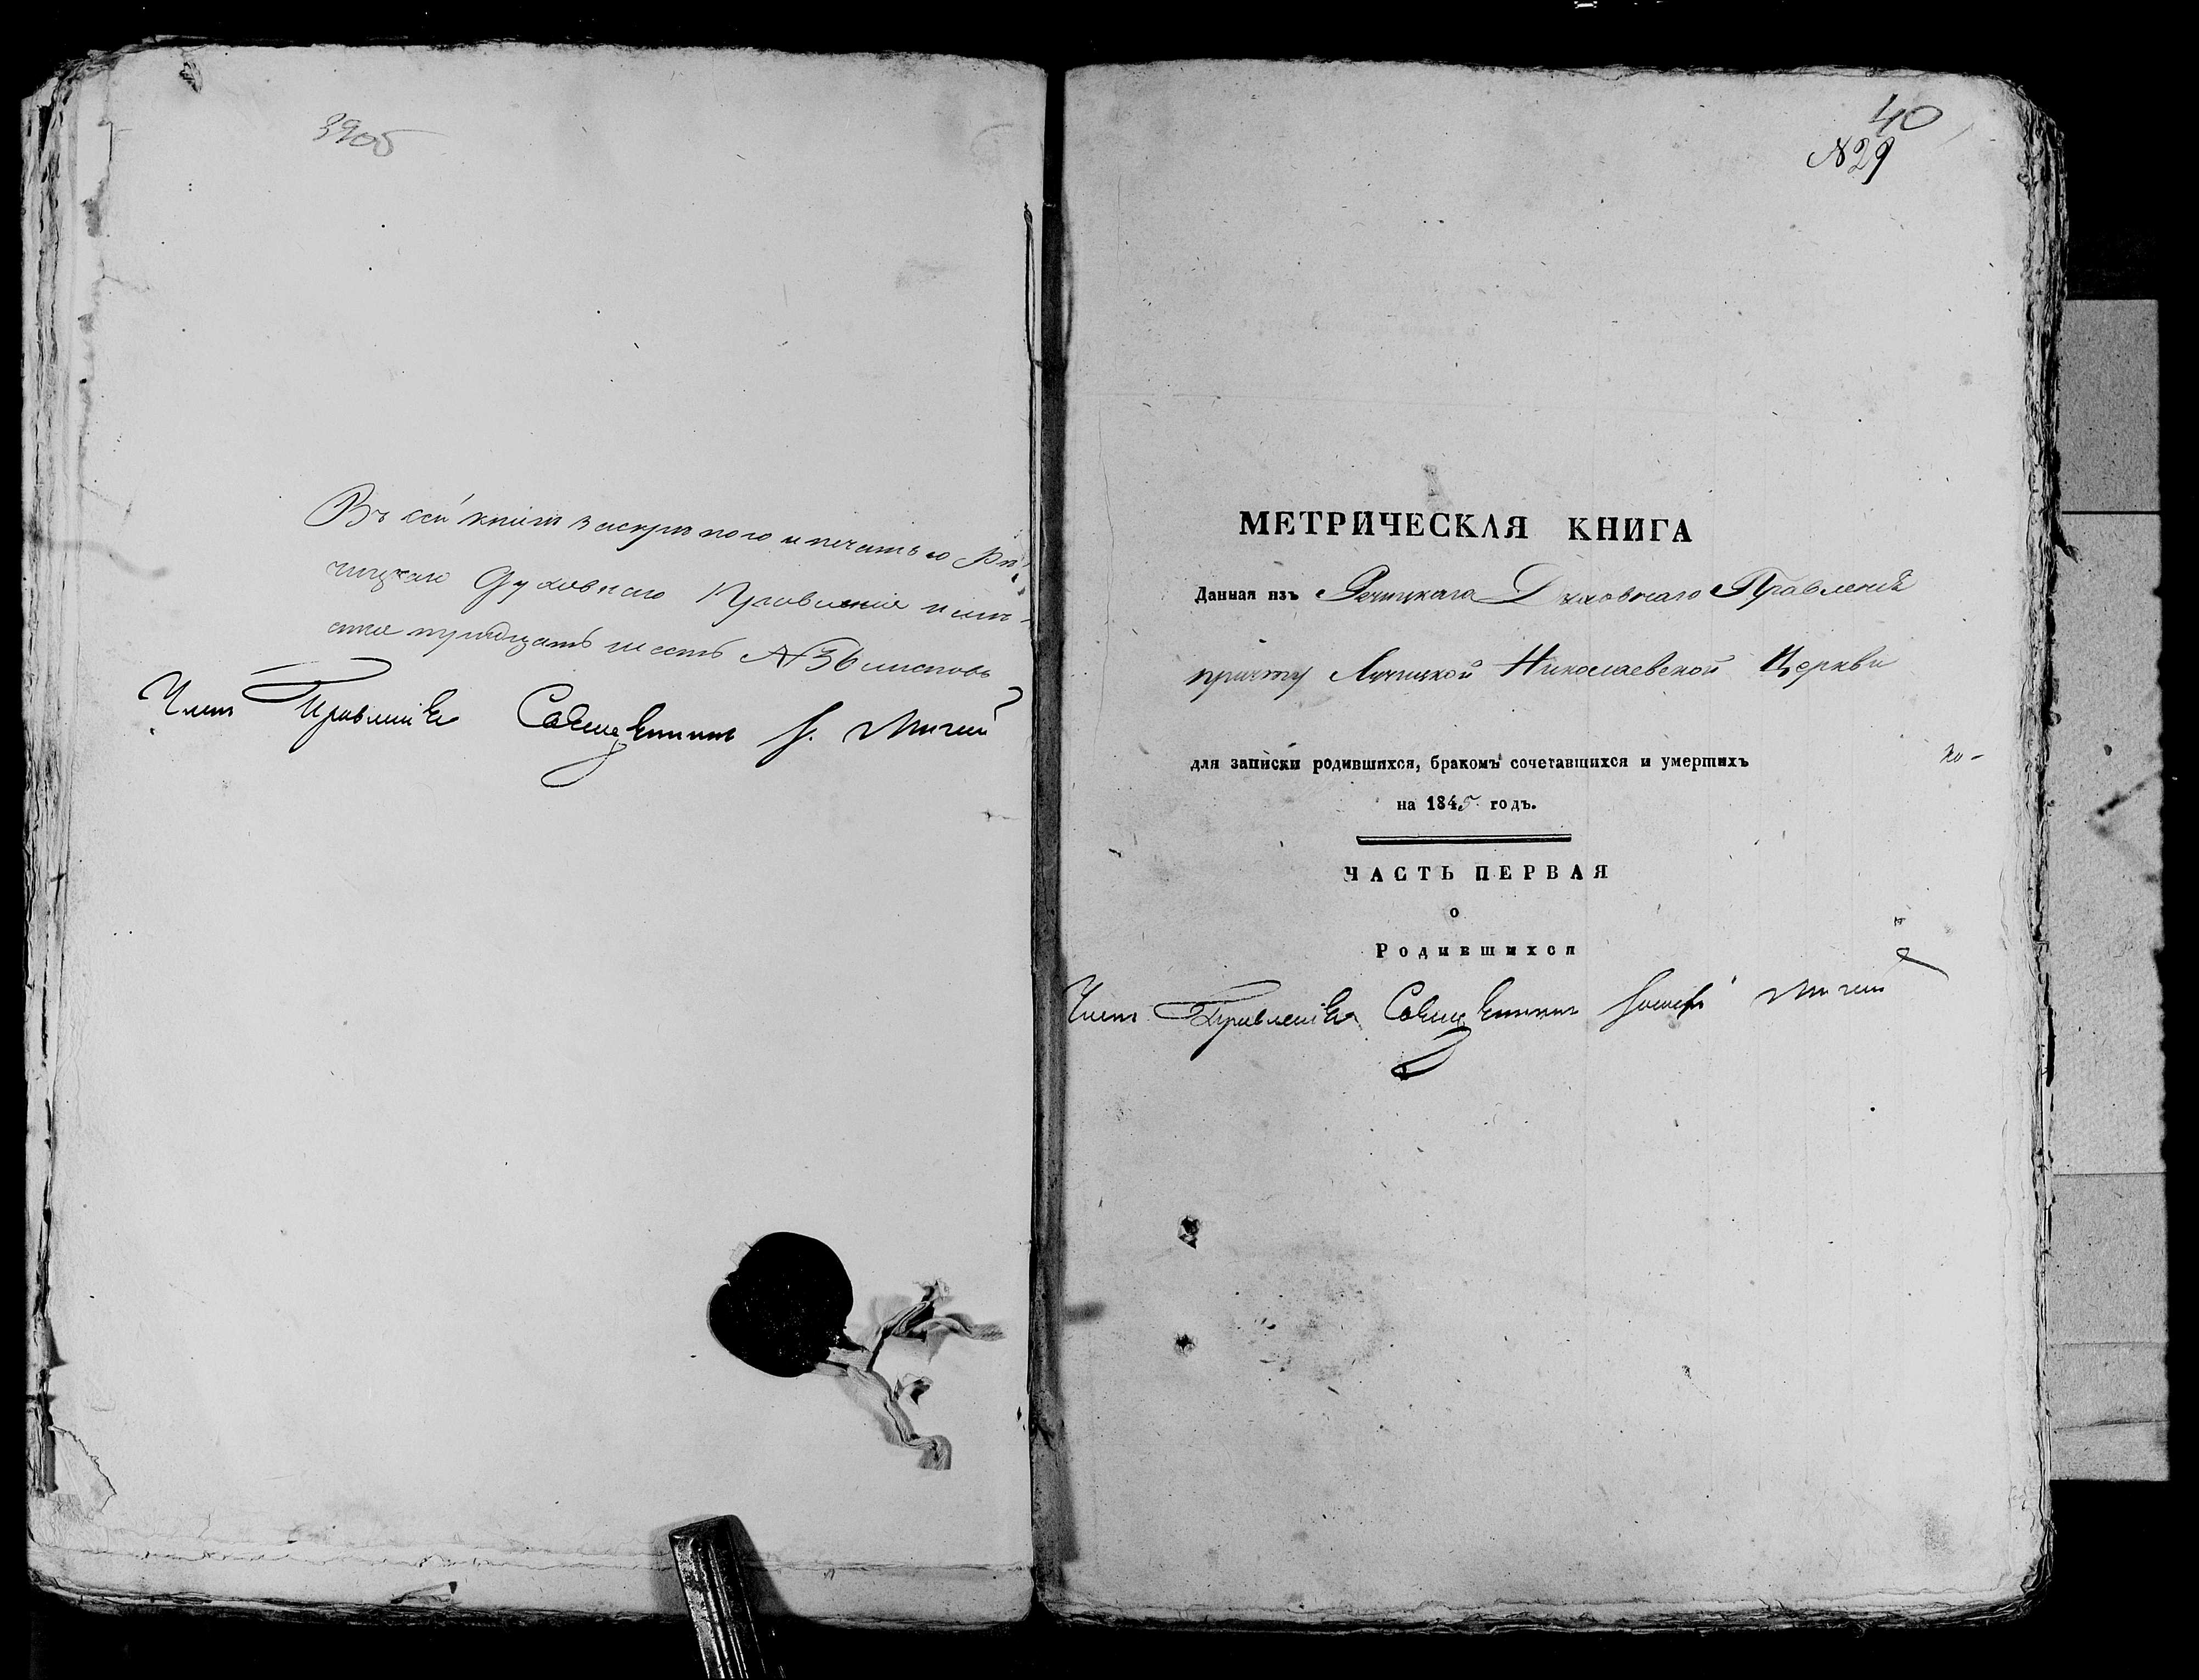 39об
Въ сей книги за скрепою и печатью Рѣ-
чицкаго Духовнаго Правления
тридцать шесть №36 листовъ
Членъ Правленія Священникъ
40
№29
МЕТРИЧЕСКАЯ КНИГА
Данная изъ Речицкаго Духовнаго Правленія
причту Лучицкой Николаевской Церкви
для записки родившихся, бракомъ сочетавшихся и умершихъ
на 1845 годъ.
ЧАСТЬ ПЕРВАЯ
о
Родившихся
Членъ Правленія Священникъ